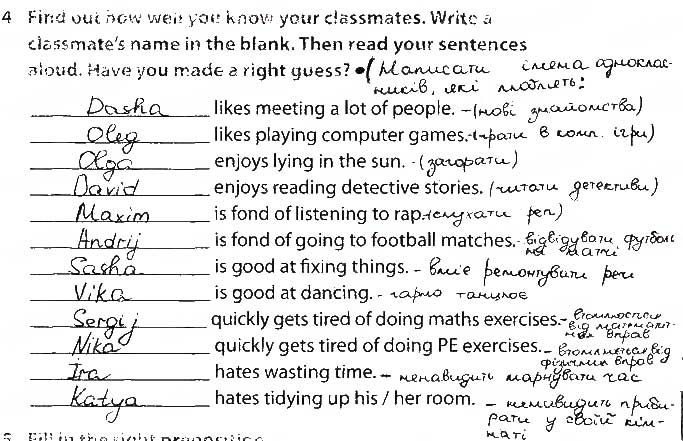 4 Find out how well you know your classmates. Write a
classmate's name in the blank. Then read your sentences
aloud. Have you made a right guess? (Написати імена одноклас-
ників, які люблять:
Dasha likes meeting a lot of people. - (нові знайомства)
Oleg likes playing computer games. - (грати в комп. ігри)
Olga enjoys lying in the sun. - (загорати)
David enjoys reading detective stories. (читати детективи)
Maxim is fond of listening to rap. (слухати реп)
Andrij is fond of going to football matches. - відвідувати футболь
ні матчі
Sasha is good at fixing things. - вміє ремонтувати речі
Vika is good at dancing. - гарно танцює
Sergij quickly gets tired of doing maths exercises. - втомлюється
від математич-
них вправ
Nika quickly gets tired of doing PE exercises. - втомлюється від
фізичних вправ
Ira hates wasting time. - ненавидить марнувати час
Katya hates tidying up his / her room. - ненавидить приби-
рати у своїй кім-
наті
5 Fill in the right preposition